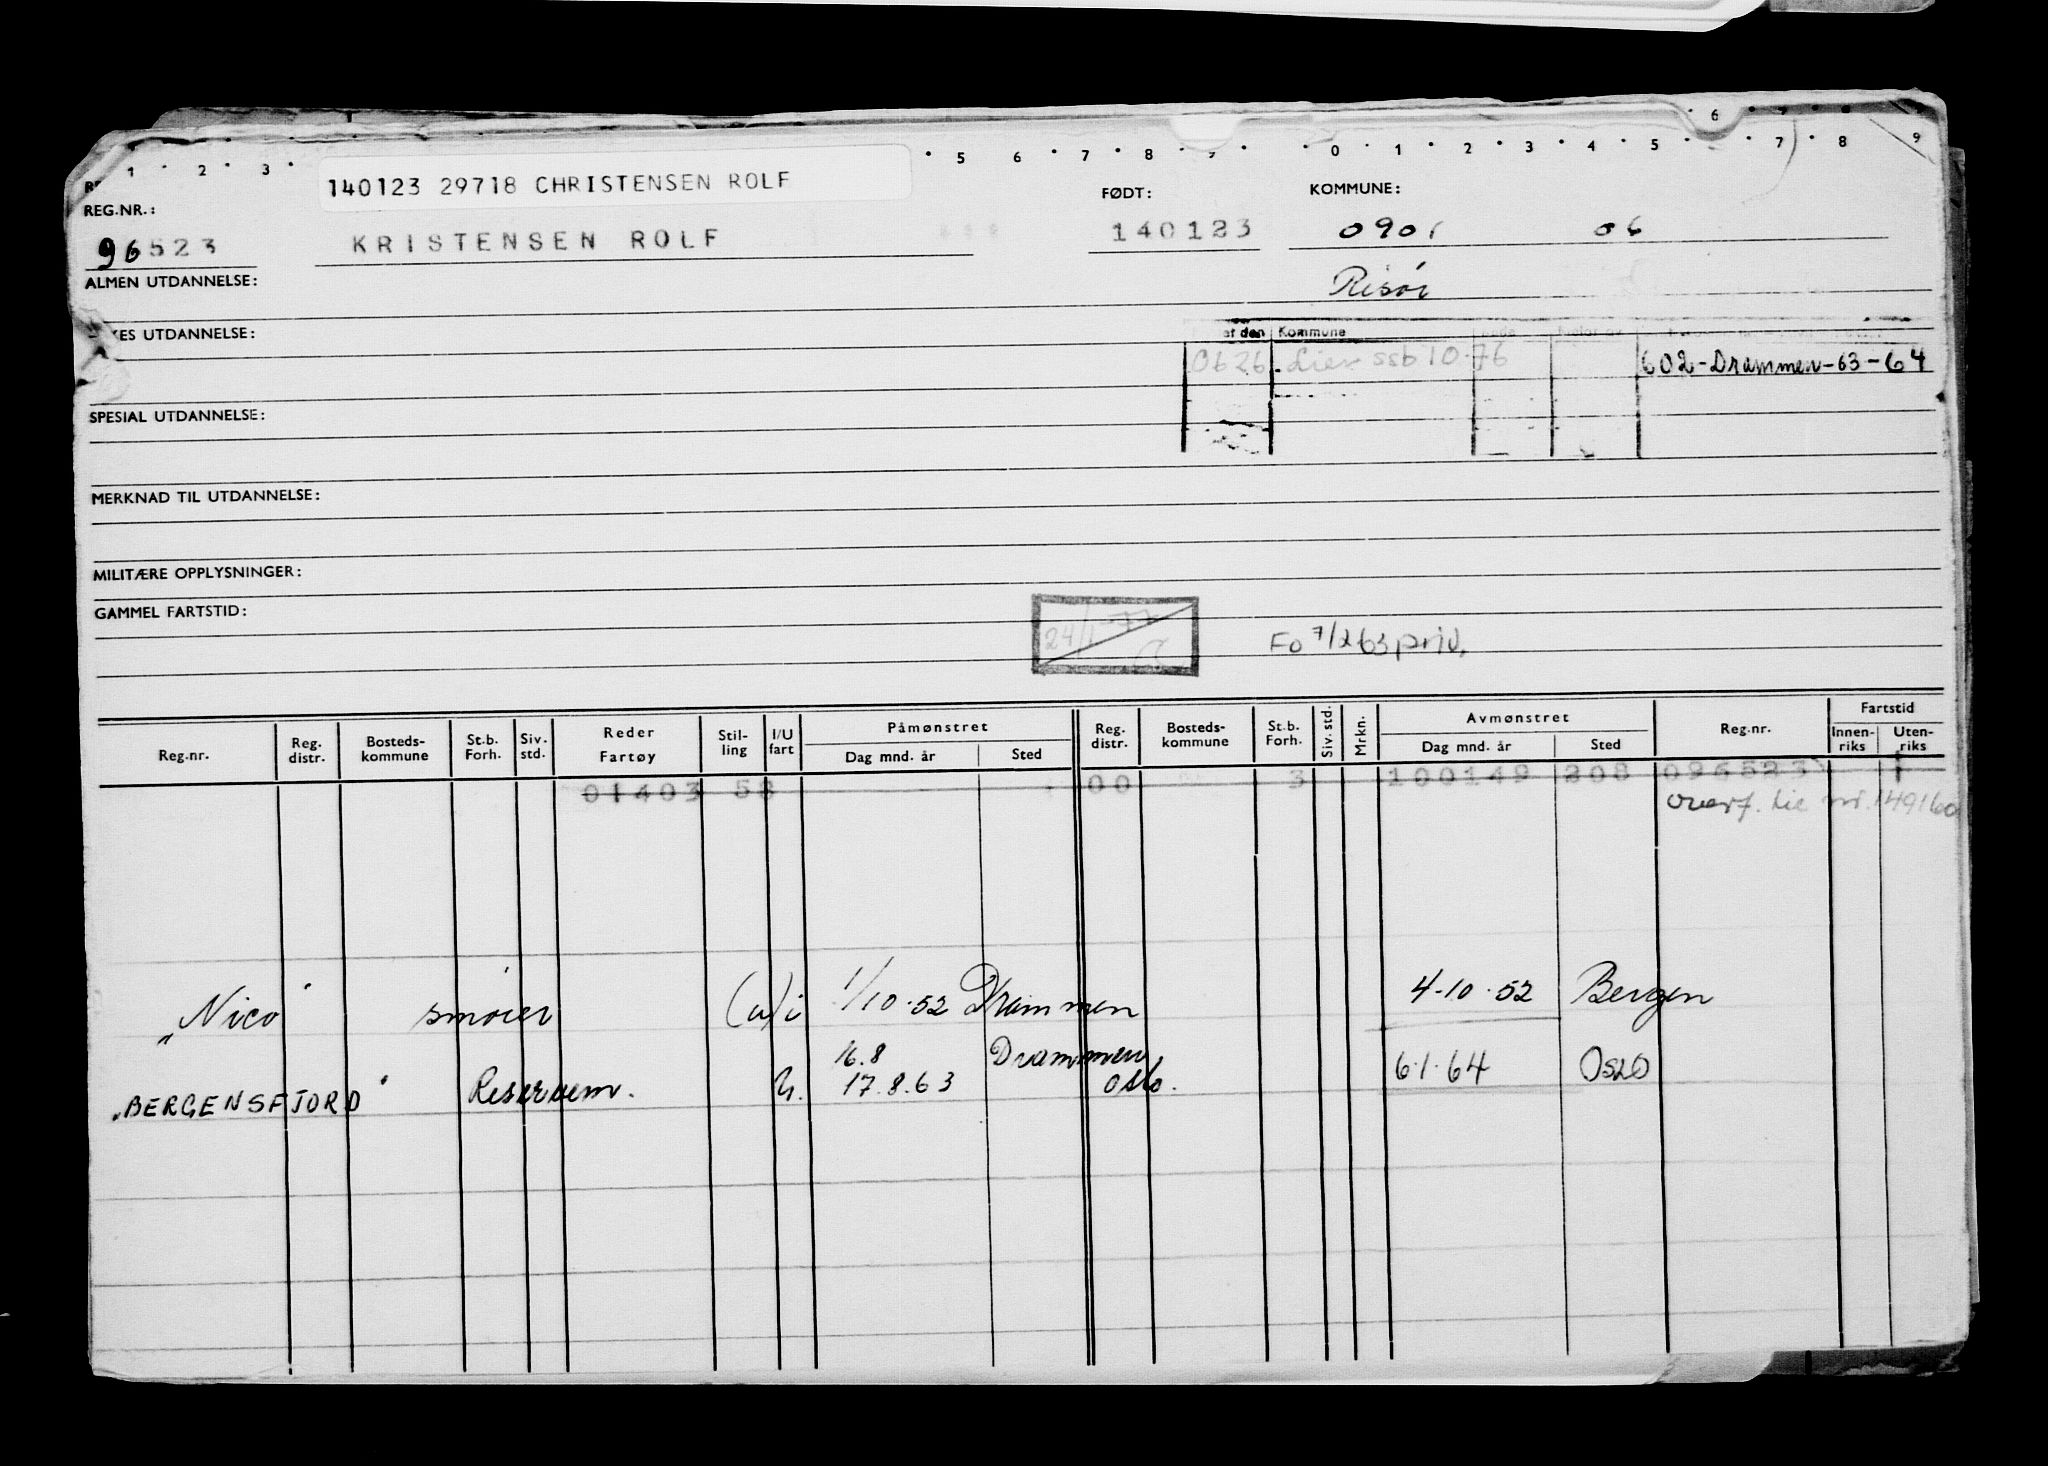 1 . 2 . 3 . . 5 6 . 7 . 8 . 9 . . 0 . 1 . 2 . 3 . 4 . 5 6 7 8 9
140123 29718 CHRISTENSEN ROLF
FØDT: KOMMUNE:
REG.NR.:
96523 KRISTENSEN ROLF 140123 0901 06
ALMEN UTDANNELSE: Risør
KES UTDANNELSE: et den Kommune
0626. Lier ssb 10.76 602-Drammen-63-64
SPESIAL UTDANNELSE:
MERKNAD TIL UTDANNELSE:
MILITÆRE OPPLYSNINGER:
GAMMEL FARTSTID:
24/1-77
Fo 7/2 63 priv.
Reg.nr. Reg. distr. Bosteds-kommune St.b. Forh. Siv. std. Reder Fartøy Stil-ling I/U fart Påmønstret Dag mnd. år Sted Reg. distr. Bosteds-kommune St.b. Forh. Siv. std. Mrkn. Avmønstret Dag mnd. år Sted Reg.nr. Fartstid Innen-riks Uten-riks
01403 53 00 3 100149 208 096523 1
overf. lic nr. 149160
"Nico" smører (u)i 1/10.52 Drammen 4-10.52 Bergen
16.8 Drammen
"BERGENSFJORD" Reservem. U. 17.8.63 Oslo. 6.1.64 OSLO